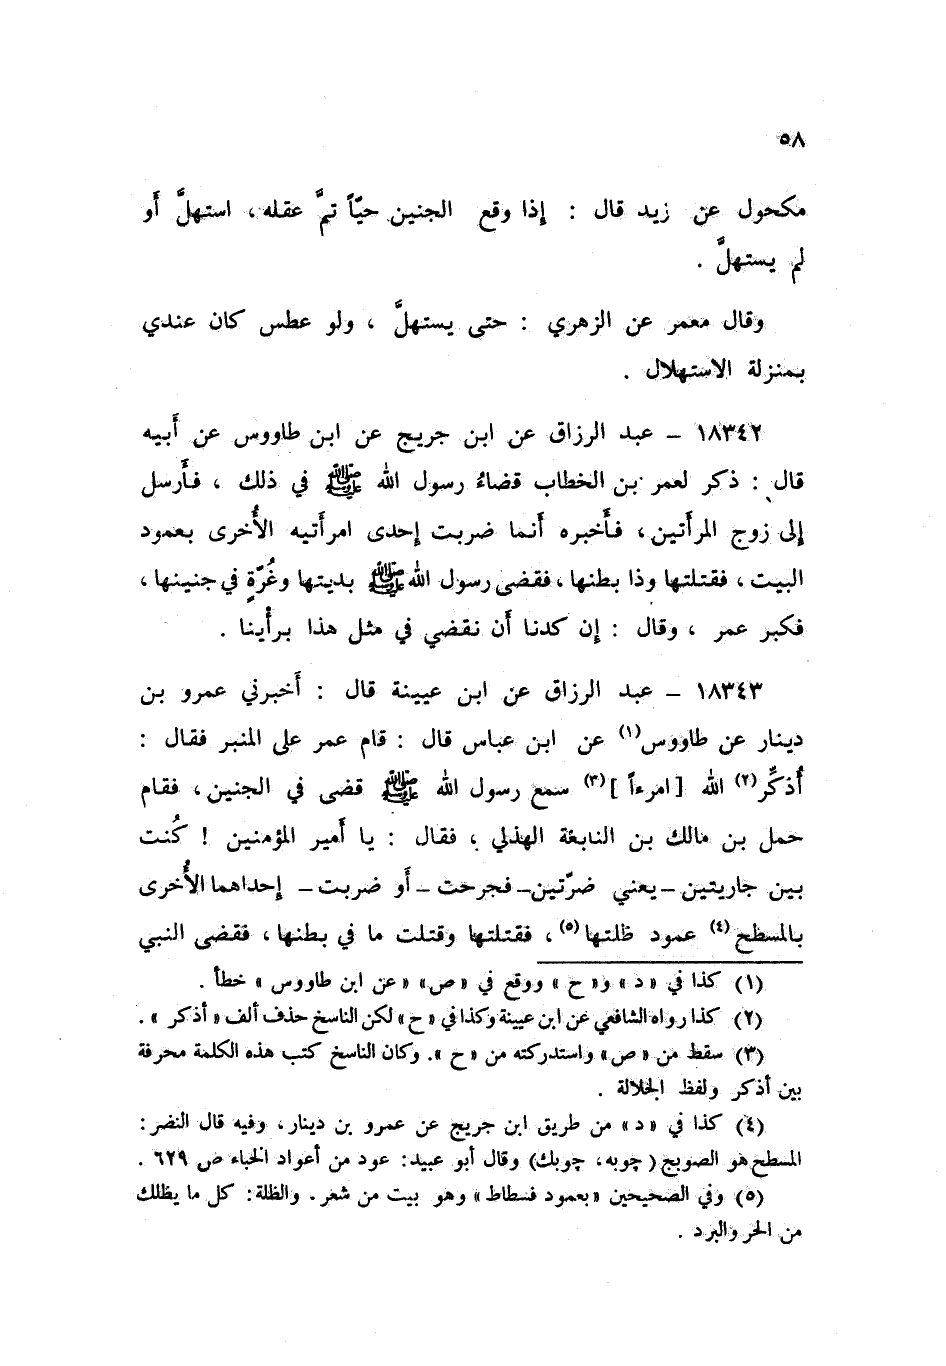 ٥٨
مكحول عن زيد قال : إذا وقع الجنين حيّاً تمَّ عقله ، استهلَّ أَو
لم يستهلَّ .
وقال معمر عن الزهري : حتى يستهلَّ ، ولو عطس كان عندي
بمنزلة الاستهلال .
١٨٣٤٢ – عبد الرزاق عن ابن جريج عن ابن طاووس عن أَبيه
قال : ذكر لعمر بن الخطاب قضاءُ رسول الله ﷺ في ذلك ، فأَرسل
إلى زوج المرأَتين ، فأَخبره أَنما ضربت إحدى امرأَتيه الأُخرى بعمود
البيت ، فقتلتها وذا بطنها ، فقضى رسول الله ﷺ بديتها وغُرّةٍ في جنينها ،
فكبر عمر ، وقال : إن كدنا أَن نقضي في مثل هذا برأْينا .
١٨٣٤٣ – عبد الرزاق عن ابن عيينة قال : أَخبرني عمرو بن
دينار عن طاووس (١) عن ابن عباس قال : قام عمر على المنبر فقال :
أُذكِّر (٢) الله [ امرءاً ] (٣) سمع رسول الله ﷺ قضى في الجنين ، فقام
حمل بن مالك بن النابغة الهذلي ، فقال : يا أَمير المؤمنين ! كُنت
بين جاريتين – يعني ضرّتين – فجرحت – أَو ضربت – إحداهما الأُخرى
بالمسطح (٤) عمود ظلتها (٥) ، فقتلتها وقتلت ما في بطنها ، فقضى النبي
(١) كذا في « د » و« ح » ووقع في « ص » « عن ابن طاووس » خطأ .
(٢) كذا رواه الشافعي عن ابن عيينة وكذا في « ح » لكن الناسخ حذف ألف « أذكر » .
(٣) سقط من « ص » واستدركته من « ح ». وكان الناسخ كتب هذه الكلمة محرفة
بين أذكر ولفظ الجلالة .
(٤) كذا في « د » من طريق ابن جريج عن عمرو بن دينار ، وفيه قال النضر :
المسطح هو الصوبج ( چوبه ، چوبك ) وقال أبو عبيد : عود من أعواد الخباء ص ٦٢٩ .
(٥) وفي الصحيحين « بعمود فسطاط » وهو بيت من شعر . والظلة : كل ما يظلك
من الحر والبرد .